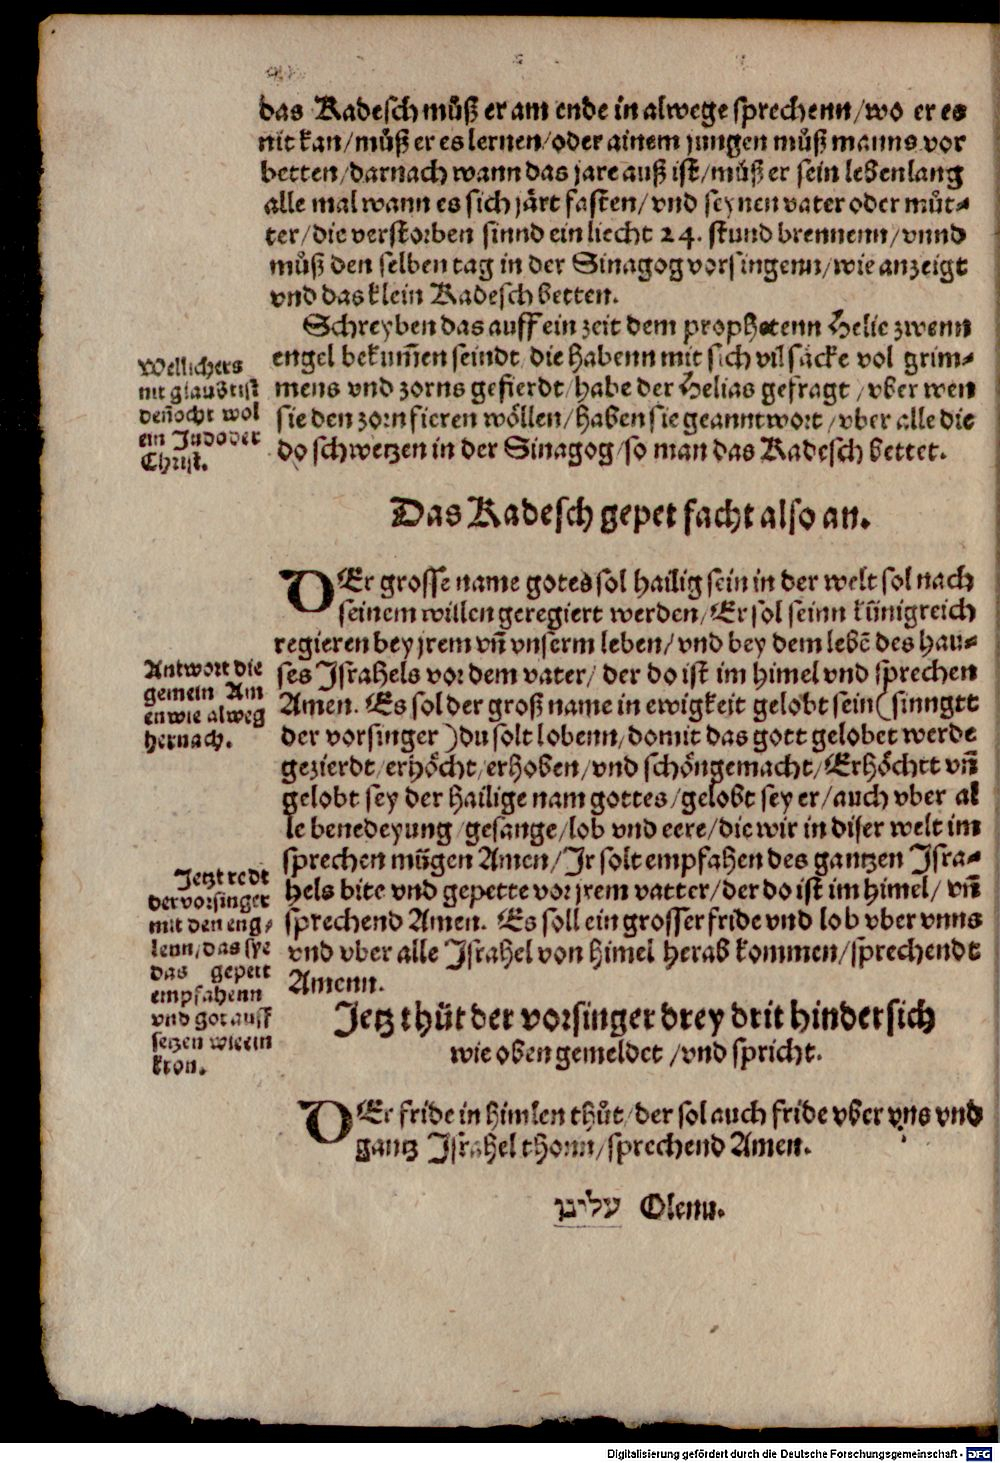 das Kadesch müß er am ende in alwege sprechenn/wo er es
nit kan/müß er es lernen/oder ainem jungen müß manns vor
betten/darnach wann das jare auß ist/müß er sein lebenlang
alle mal wann es sich järt fasten/vnd seynen vater oder müt⸗
ter/die verstorben sinnd ein liecht 24. stund brennenn/vnnd
müß den selben tag in der Sinagog vorsingenn/wie anzeigt
vnd das klein Kadesch betten.
Schreyben das auff ein zeit dem prophetenn Helie zwenn
engel bekum̃en seindt/die habenn mit sich vil säcke vol grim⸗
mens vnd zorns gefierdt/habe der Helias gefragt/vber wen
sie den zorn fieren wöllen/haben sie geanntwort/vber alle die
do schwetzen in der Sinagog/so man das Kadesch bettet.
Wellichers
nit glaubt ist
deñocht wol
ein Jud oder
Christ.
Das Kadesch gepet facht also an.
DEr grosse name gotes sol hailig sein in der welt sol nach
seinem willen geregiert werden/Er sol seinn künigreich
regieren bey jrem vñ vnserm leben/vnd bey dem lebẽ des hau⸗
ses Israhels vor dem vater/der do ist im himel vnd sprechen
Amen. Es sol der groß name in ewigkeit gelobt sein (sinngtt
der vorsinger) du solt lobenn/domit das gott gelobet werde
gezierdt/erhöcht/erhoben/vnd schöngemacht/Erhöchtt vñ
gelobt sey der hailige nam gottes/gelobt sey er/auch vber al
le benedeyung/gesange/lob vnd eere/die wir in diser welt im
sprechen mügen Amen/Ir solt empfahen des gantzen Isra⸗
hels bite vnd gepette vor jrem vatter/der do ist im himel/vñ
sprechend Amen. Es soll ein grosser fride vnd lob vber vnns
vnd vber alle Israhel von himel herab kommen/sprechendt
Amenn.
Antwort die
gemein Am
en wie alweg
hernach.
Jetzt redt
der vorsinger
mit den eng⸗
lenn/das sye
das gepett
empfahenn
vnd got auff
setzen wie ein
kron.
Jetz thüt der vorsinger drey drit hindersich
wie oben gemeldet/vnd spricht.
DEr fride in himlen thüt/der sol auch fride vber vns vnd
gantz Israhel thonn/sprechend Amen.
עלינו Olenu.
Digitalisierung gefördert durch die Deutsche Forschungsgemeinschaft - DFG